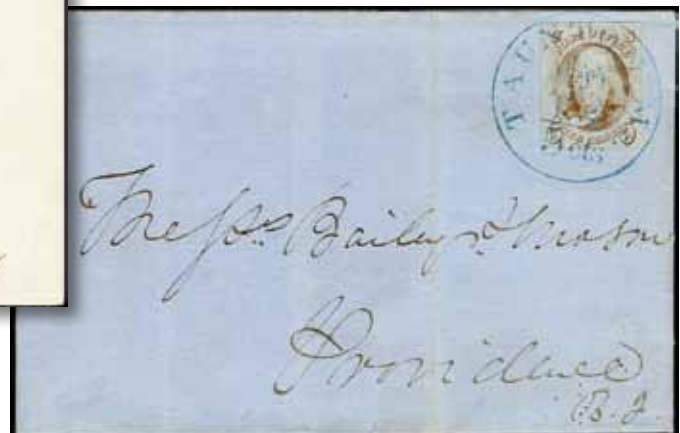 TAUN
Messrs Bailey & Mason
Providence
R. I.